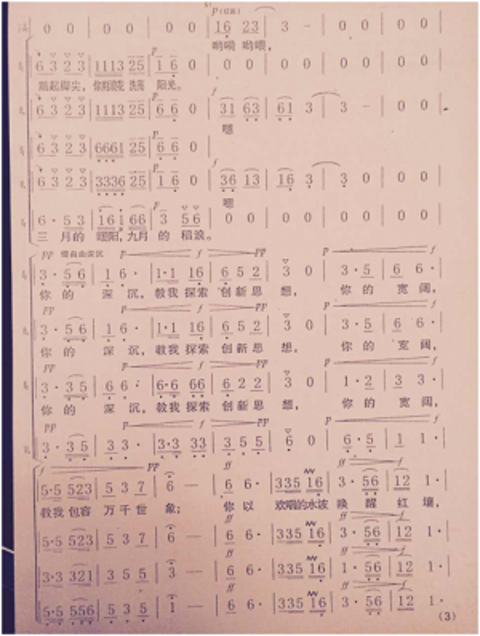 0 0 | 0 0 | 0 0 | 0 0 | 16 23 | 3 - | 0 0 | 0 0
哟嗬 哟嗬，
6 3 2 3 | 1113 25 | 1 6 0 | 0 0 | 0 0 | 0 0 | 0 0 | 0 0
踮起脚尖， 阳光。
6 3 2 3 | 1113 25 | 6 6 0 | 0 0 | 31 63 | 61 3 | 3 - | 0 0
嗯
6 3 2 3 | 6661 25 | 6 6 0
6 3 2 3 | 3336 25 | 1 6 0 | 0 0 | 36 13 | 16 3 | 3 0 | 0 0
嗯
6· 5 3 | 16 1 66 | 3 5 6 | 0 0 | 0 0 | 0 0 | 0 0 | 0 0
三 月的 暖阳，九月 的 稻浪。
pp 稍自由深沉 p f pp p f
3· 5 6 | 1 6· | 1·1 16 | 6 5 2 | 3 0 | 3·5 | 6 6·
你 的 深 沉，教我 探索 创新 思 想， 你 的 宽 阔，
pp p f pp p f
3· 5 6 | 1 6· | 1·1 16 | 6 5 2 | 3 0 | 3·5 | 6 6·
你 的 深 沉，教我 探索 创新 思 想， 你 的 宽 阔，
pp p f pp p f
3· 3 5 | 6 6· | 6·6 66 | 6 2 2 | 3 0 | 1·2 | 3 3·
你 的 深 沉，教我 探索 创新 思 想， 你 的 宽 阔，
pp p f pp p f
3· 3 5 | 3 3· | 3·3 33 | 3 5 5 | 6 0 | 6·5 | 1 1·
f pp ff ff f
5·5 523 | 5 3 7 | 6 — | 6 6· | 335 16 | 3· 56 | 12 1·
教我 包容 万千 世 象； 你 以 欢唱的水波 唤 醒 红 壤，
ff ff f
5·5 523 | 5 3 7 | 6 — | 6 6· | 335 16 | 3· 56 | 12 1·
ff ff f
3·3 321 | 3 5 5 | 3 — | 6 6· | 335 16 | 1· 56 | 12 1·
ff ff f
5·5 556 | 5 3 5 | 1 — | 6 6· | 335 16 | 3· 56 | 12 1·
(3)